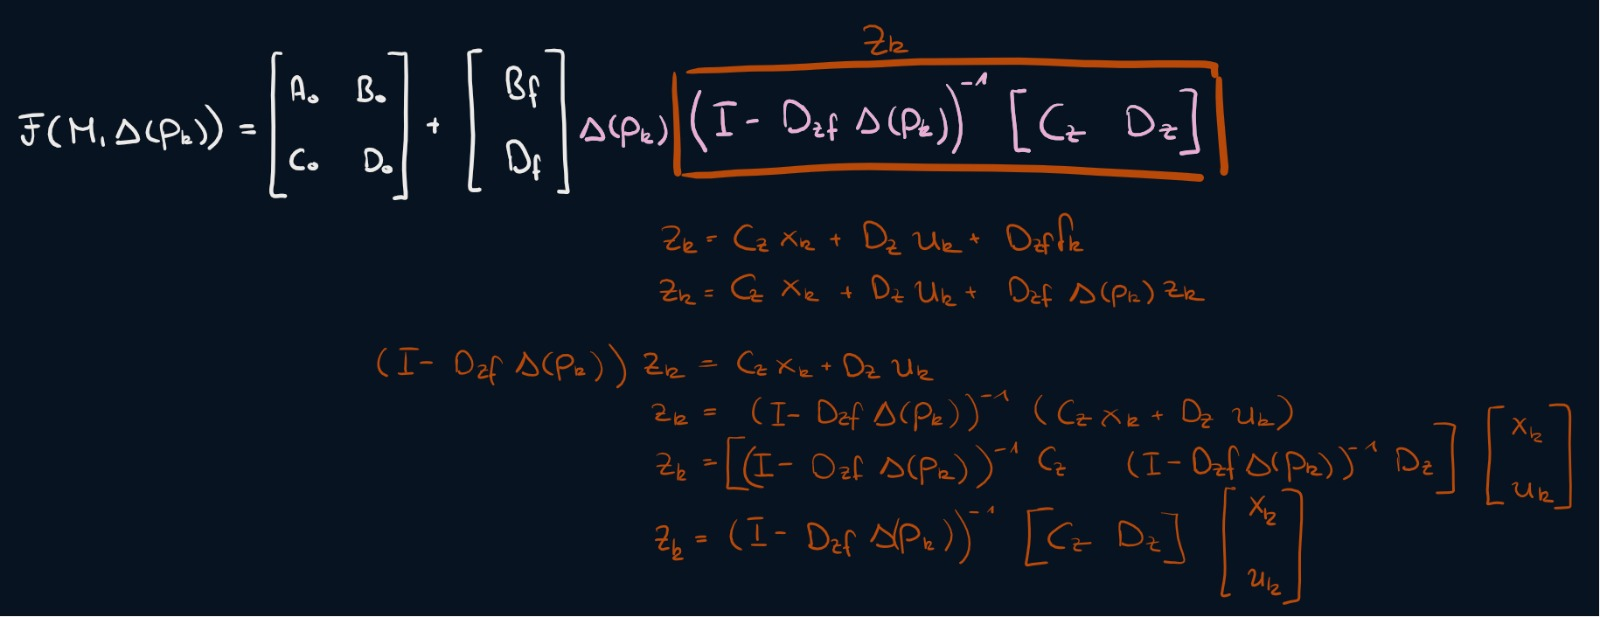 z_k
F(M, Δ(p_k)) = [A_o B_o; C_o D_o] + [B_f; D_f] Δ(p_k) (I - D_zf Δ(p_k))^-1 [C_z D_z]
z_k = C_z x_k + D_z u_k + D_zf f_k
z_k = C_z x_k + D_z u_k + D_zf Δ(p_k) z_k
(I - D_zf Δ(p_k)) z_k = C_z x_k + D_z u_k
z_k = (I - D_zf Δ(p_k))^-1 (C_z x_k + D_z u_k)
z_k = [(I - D_zf Δ(p_k))^-1 C_z (I - D_zf Δ(p_k))^-1 D_z] [x_k; u_k]
z_k = (I - D_zf Δ(p_k))^-1 [C_z D_z] [x_k; u_k]